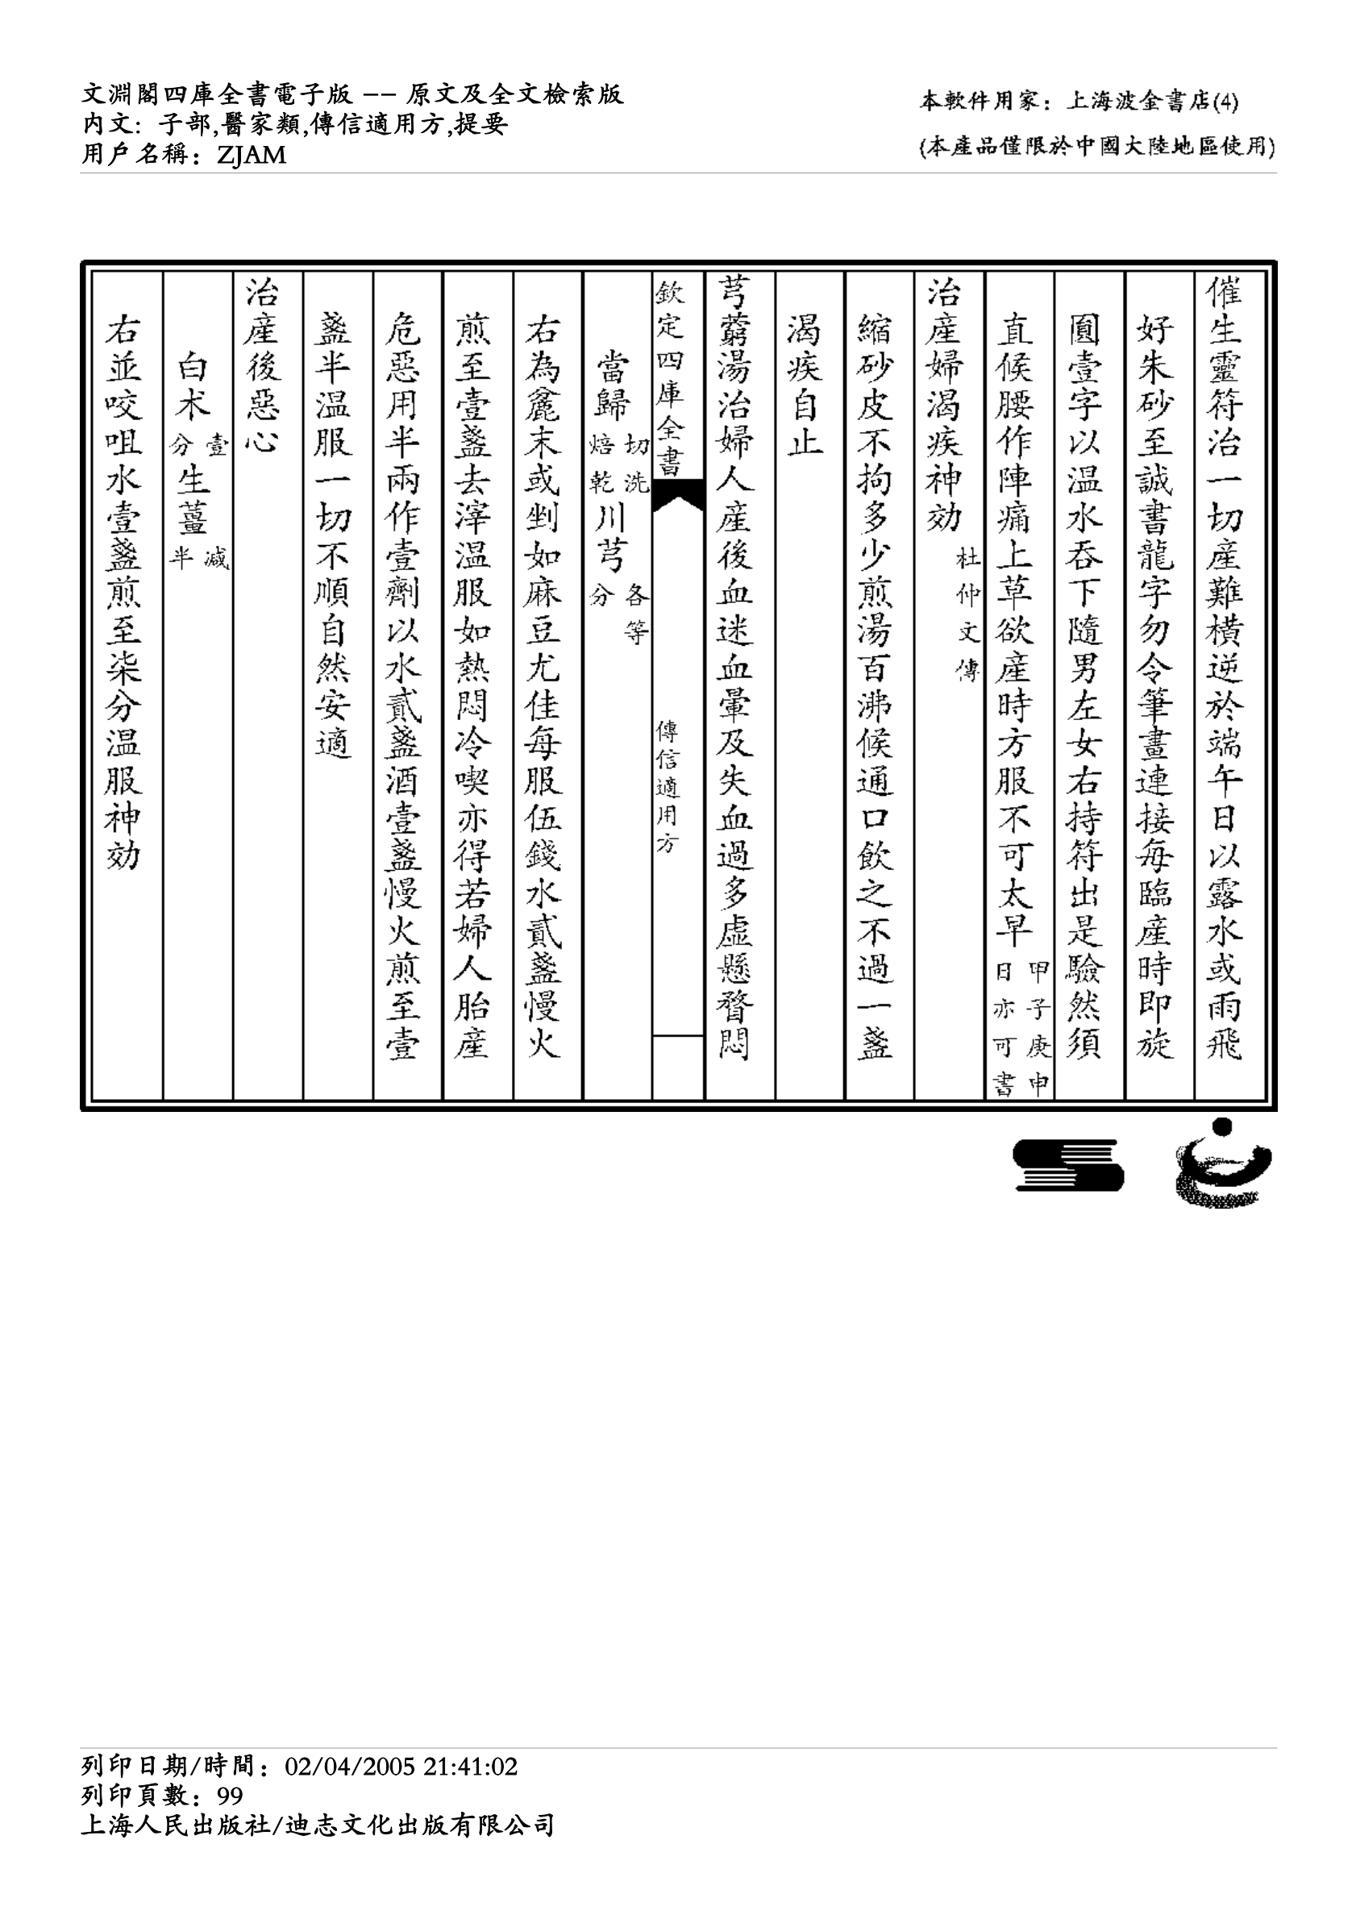 文淵閣四庫全書電子版 -- 原文及全文檢索版
内文: 子部,醫家類,傳信適用方,提要
用戶名稱: ZJAM
本軟件用家: 上海波金書店(4)
(本產品僅限於中國大陸地區使用)
催生靈符治一切産難橫逆於端午日以露水或雨飛
好朱砂至誠書龍字勿令筆畫連接每臨産時即旋
圓壹字以温水吞下隨男左女右持符出是驗然須
直候腰作陣痛上草欲産時方服不可太早甲子庚申日亦可書
治産婦渴疾神効杜仲文傳
縮砂皮不拘多少煎湯百沸候通口飲之不過一盞
渴疾自止
芎藭湯治婦人産後血迷血暈及失血過多虛懸瞀悶
欽定四庫全書
傳信適用方
當歸切洗焙乾川芎各等分
右為麄末或剉如麻豆尤佳每服伍錢水貳盞慢火
煎至壹盞去滓温服如熱悶冷喫亦得若婦人胎産
危惡用半兩作壹劑以水貳盞酒壹盞慢火煎至壹
盞半温服一切不順自然安適
治産後惡心
白术壹分生薑減半
右並咬咀水壹盞煎至柒分温服神効
列印日期/時間: 02/04/2005 21:41:02
列印頁數: 99
上海人民出版社/迪志文化出版有限公司